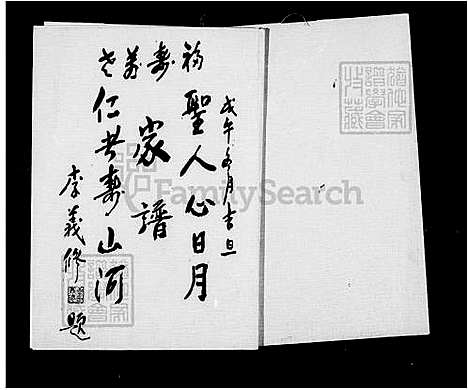 戊午冬月吉旦
福壽
聖人心日月
家譜
仁者壽山河
李義修
題
FamilySearch